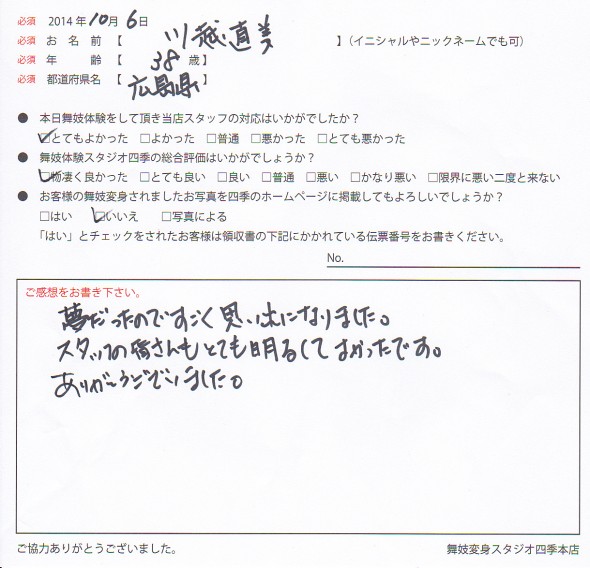 必須 2014年10月6日
必須 お名前【 川越直美 】(イニシャルやニックネームでも可)
必須 年齢【 38歳】
必須 都道府県名【 広島県 】
● 本日舞妓体験をして頂き当店スタッフの対応はいかがでしたか?
☑とてもよかった □よかった □普通 □悪かった □とても悪かった
● 舞妓体験スタジオ四季の総合評価はいかがでしょうか?
☑物凄く良かった □とても良い □良い □普通 □悪い □かなり悪い □限界に悪い二度と来ない
● お客様の舞妓変身されましたお写真を四季のホームページに掲載してもよろしいでしょうか?
□はい ☑いいえ □写真による
「はい」とチェックをされたお客様は領収書の下記にかかれている伝票番号をお書きください。
No.
ご感想をお書き下さい。
夢だったのですごく思い出になりました。
スタッフの皆さんもとても明るくてよかったです。
ありがとうございました。
ご協力ありがとうございました。 舞妓変身スタジオ四季本店